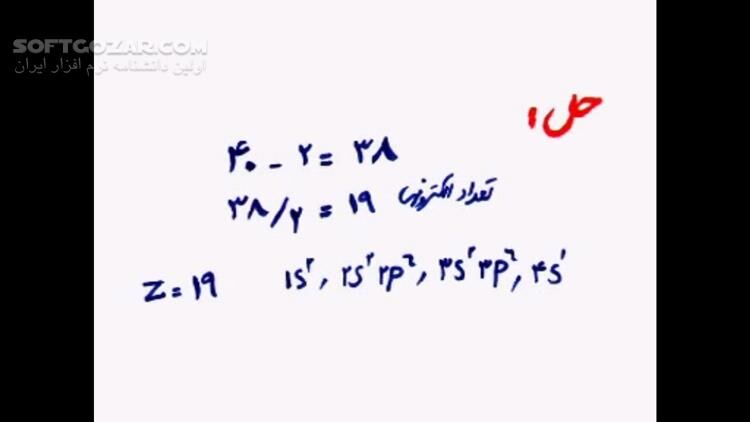 SOFTGOZAR.COM
اولین دانشنامه نرم افزار ایران
حل:
۴۰ - ۲ = ۳۸
۳۸/۲ = ۱۹ تعداد الکترونها
Z = ۱۹ ۱s۲, ۲s۲ ۲p۶, ۳s۲ ۳p۶, ۴s۱